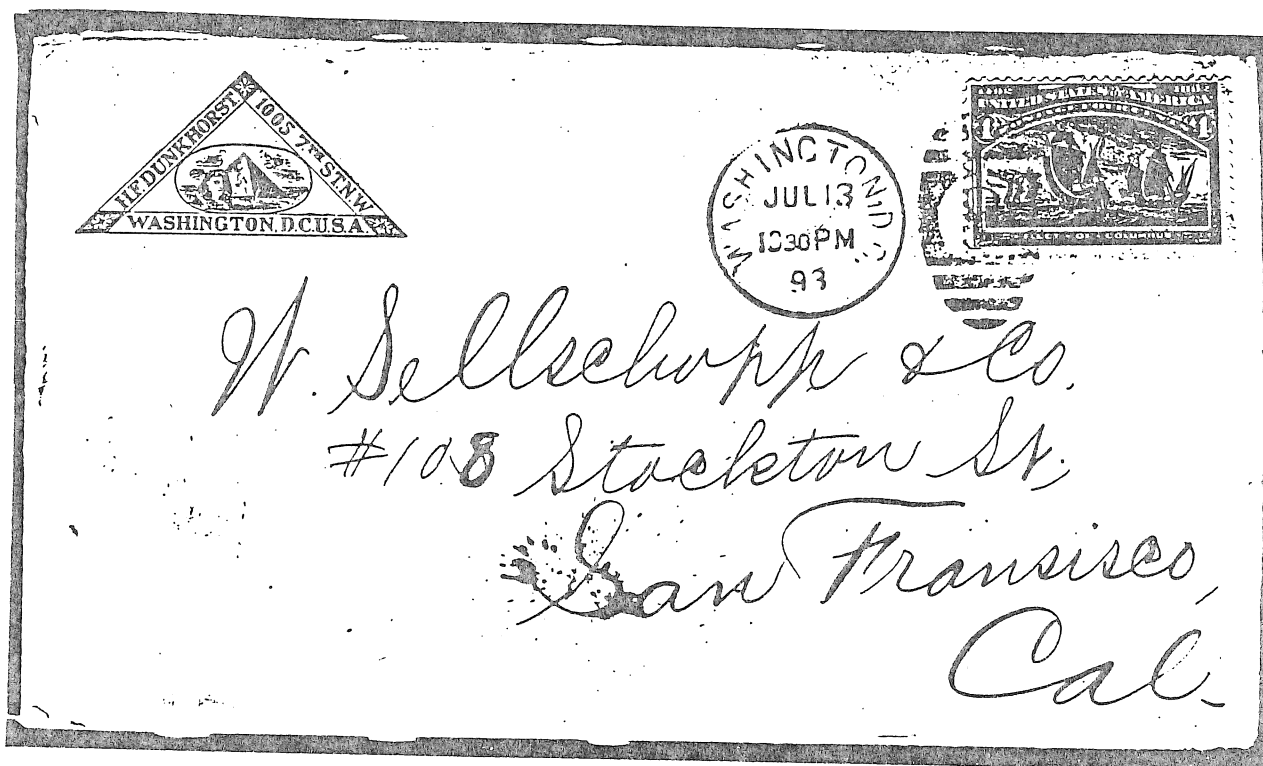 H.F. DUNKHORST
1005 7TH ST. N.W.
WASHINGTON. D.C. U.S.A.
WASHINGTON, D.C.
JUL 13
1030 PM
93
UNITED STATES OF AMERICA
1 1
W. Sellschopp & Co.
#108 Stockton St.,
San Fransisco,
Cal.